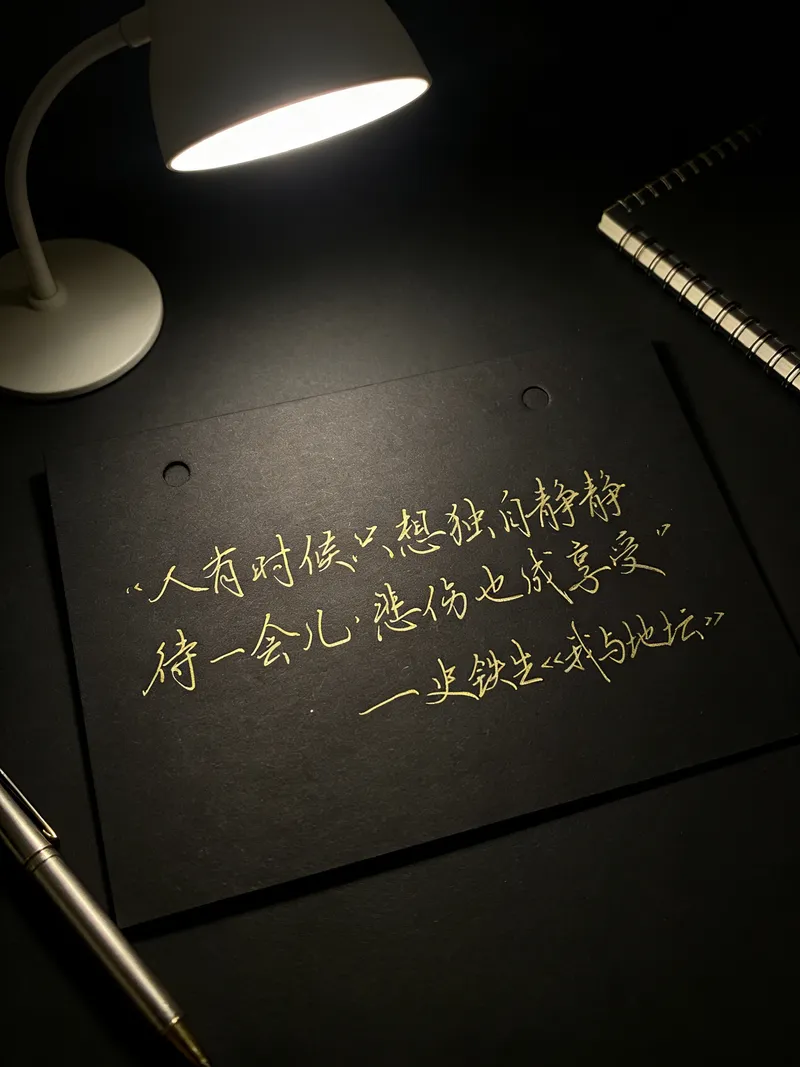 “人有时候只想独自静静
待一会儿.悲伤也成享受”
—史铁生《我与地坛》